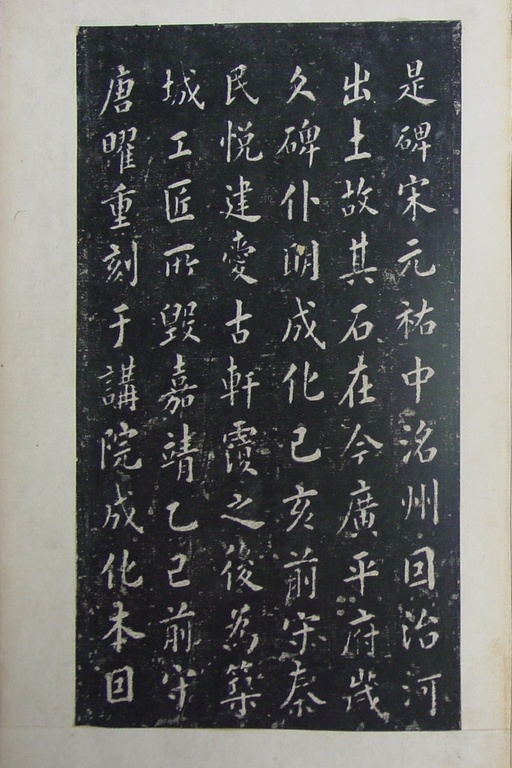 是碑宋元祐中洺州囙治河
出土故其石在今廣平府歲
久碑仆明成化己亥前守秦
民悅建愛古軒覆之後為築
城工匠所毀嘉靖乙巳前守
唐曜重刻于講院成化本囙